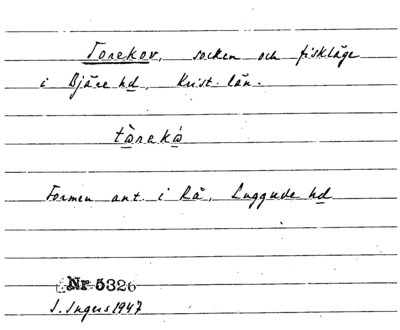 Torekov, socken och fiskläge
i Bjäre hd, Krist. län.
tàreká
Formen ant. i Rå, Luggude hd
Nr 5326
I. Ingers 1947